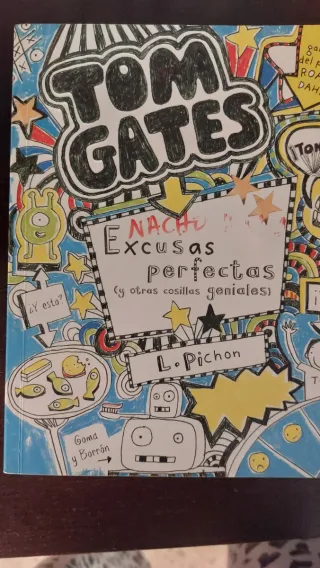 TOM
GATES
del
NACHO
Excusas
perfectas
(y otras cosillas geniales)
¿Y esto?
L. Pichon
Goma
y Borrón